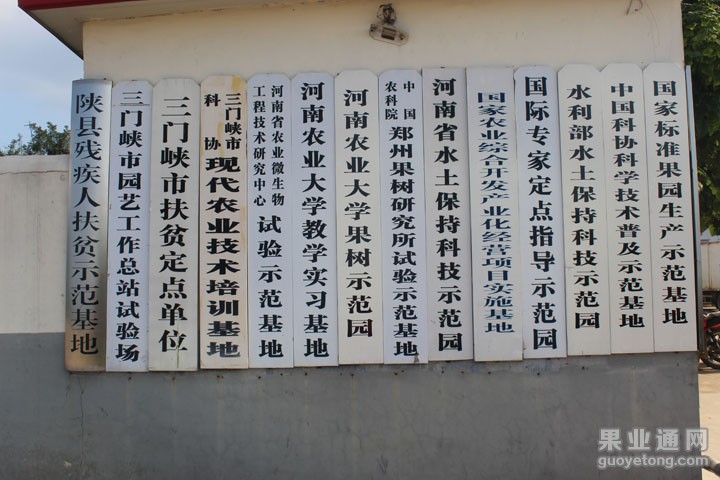 国家标准果园生产示范基地
中国科协科学技术普及示范基地
水利部水土保持科技示范园
国际专家定点指导示范园
国家农业综合开发产业化经营项目实施基地
河南省水土保持科技示范园
中国
农科院
郑州果树研究所试验示范基地
河南农业大学果树示范园
河南农业大学教学实习基地
河南省农业微生物
工程技术研究中心
试验示范基地
三门峡市
科协
现代农业技术培训基地
三门峡市扶贫定点单位
三门峡市园艺工作总站试验场
陕县残疾人扶贫示范基地
果业通网
guoyetong.com